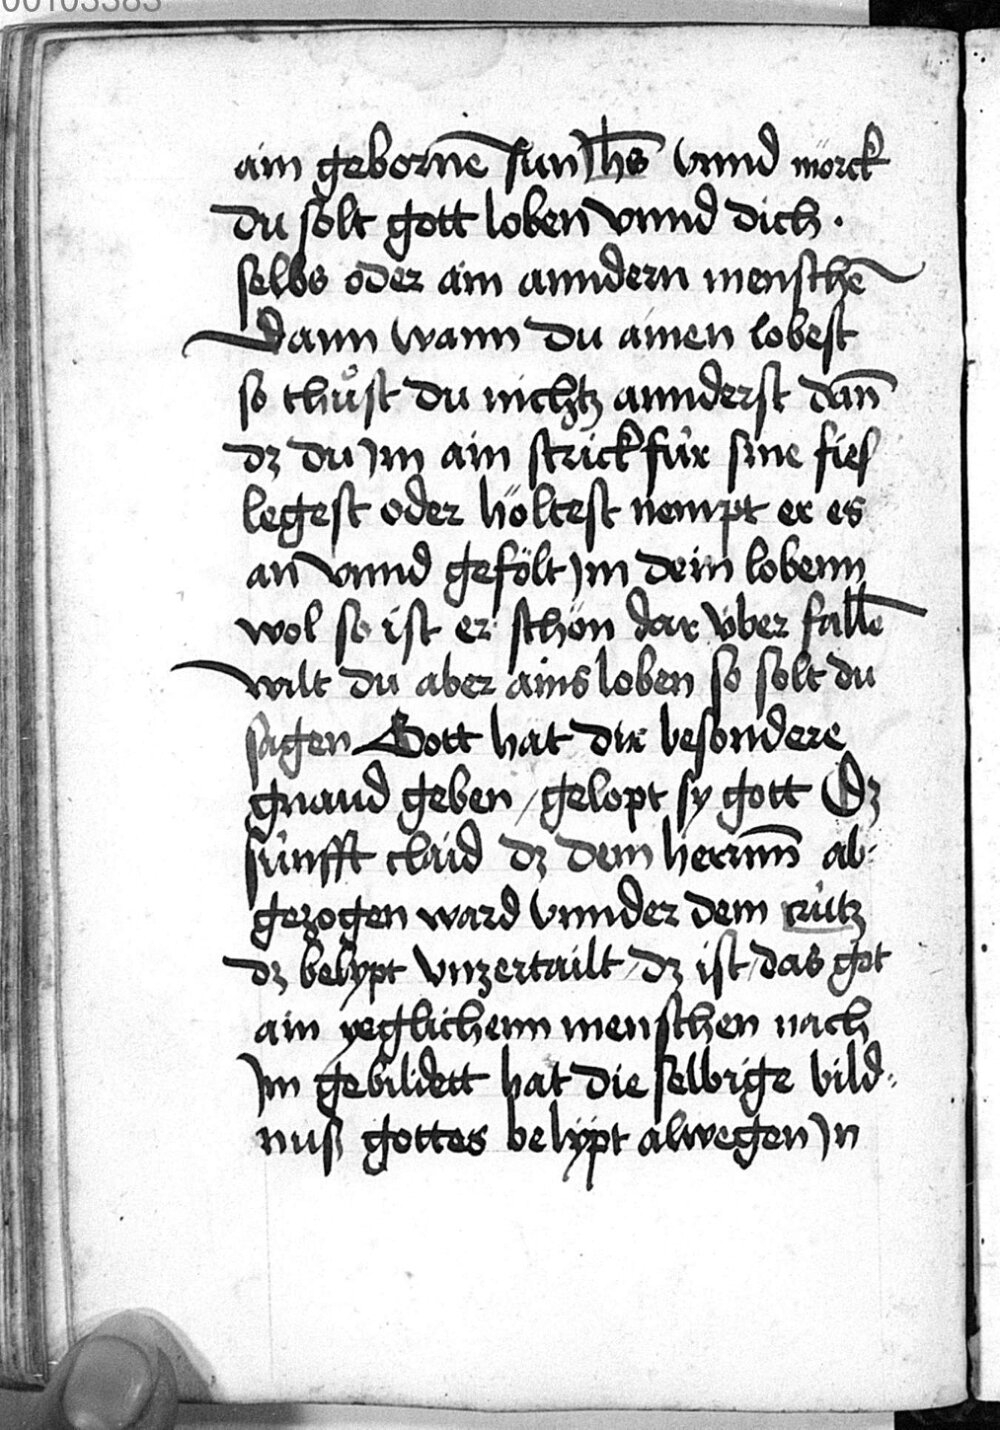 00103383
ain gebornē sun Jhs̄ vnnd mörck
du solt gott loben vnnd dich ·
selbs oder ain anndern menschē
Dann wann du ainen lobest
so thůst du nichtz annderst dan̄
dz du Jm ain strick für sine fies
legest oder höltest nempt er es
an vnnd geföłt Jm dein lobenn
wol so ist er schon dar v̈ber fallē
wilt du aber ains loben so solt du
sagen Gott hat dir besondere
gnaud geben / gelopt sy gott Dz
fünfft claid dz dem herrnn̄ ab-
gezogen ward vnnder dem crütz
dz belypt vnzertailt / dz ist / das got
ain yeglichenn menschen nach
Jm gebildett hat die selbige bild-
nuß gottes belypt alwegen Jn